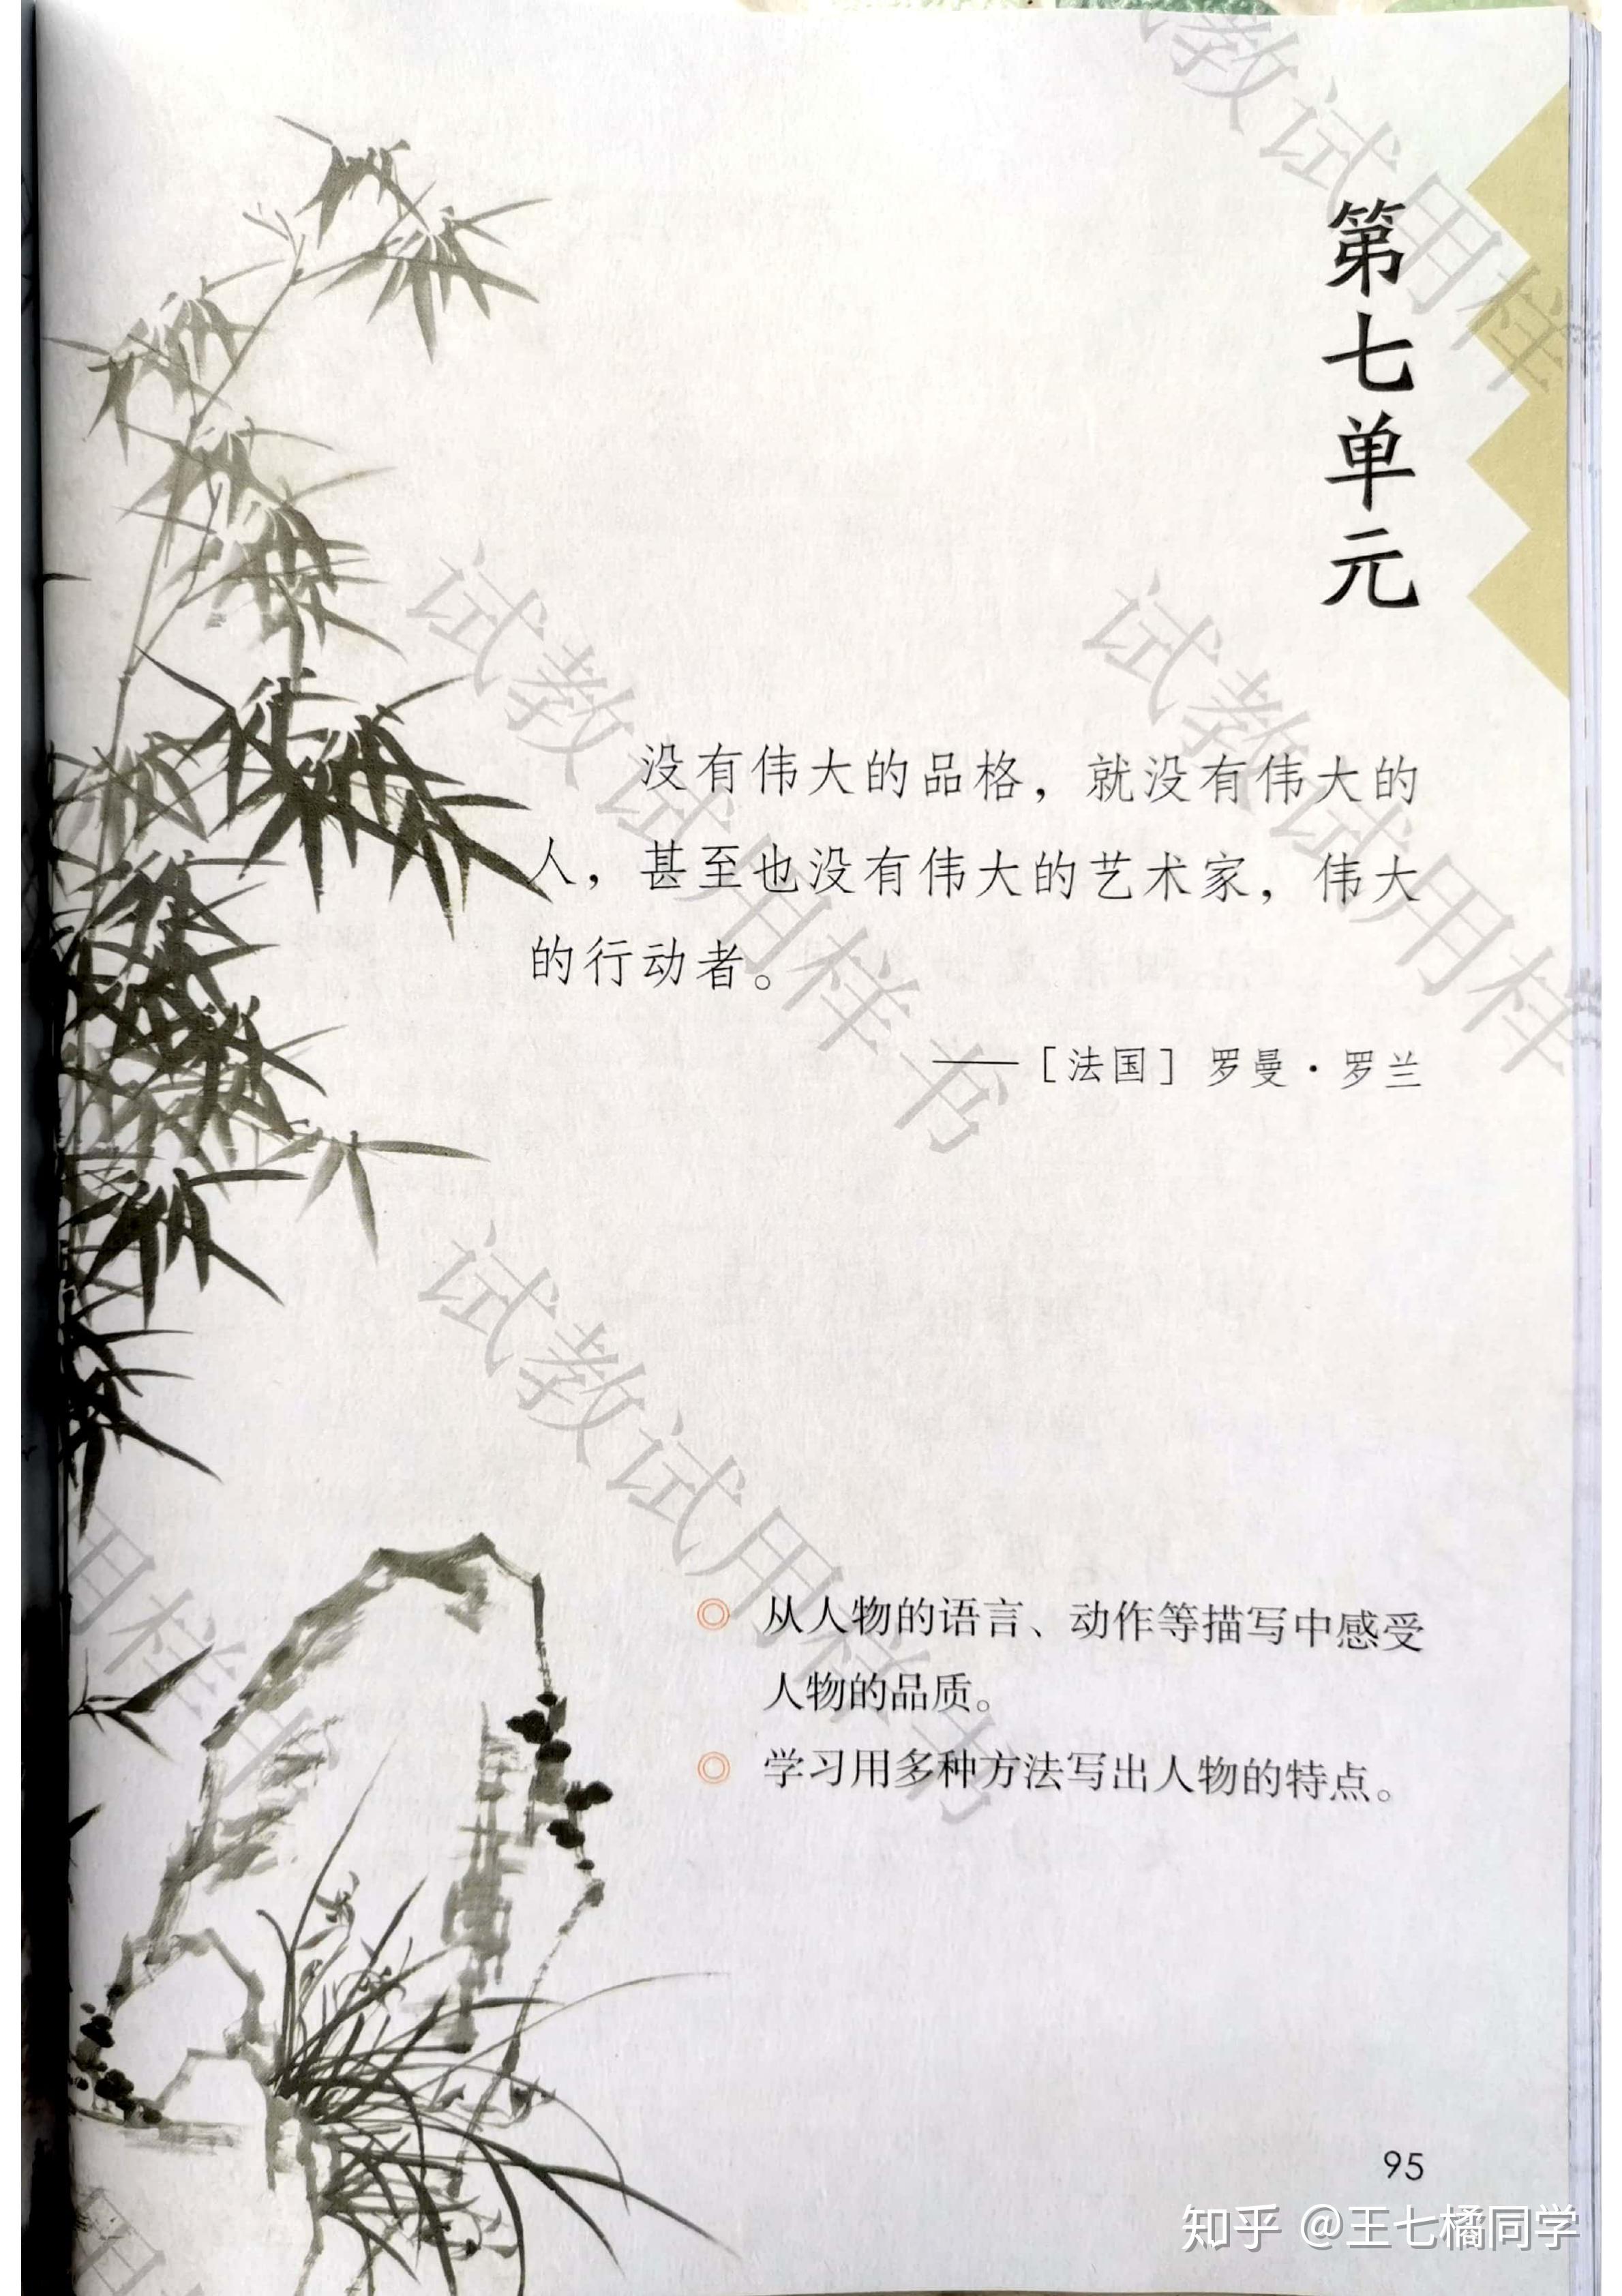 第七单元
没有伟大的品格，就没有伟大的
人，甚至也没有伟大的艺术家，伟大
的行动者。
——［法国］罗曼·罗兰
◎ 从人物的语言、动作等描写中感受
人物的品质。
◎ 学习用多种方法写出人物的特点。
95
知乎 @王七橘同学
教试用样
试教试用样书
试教试用样
试教试用样书
用样书
用